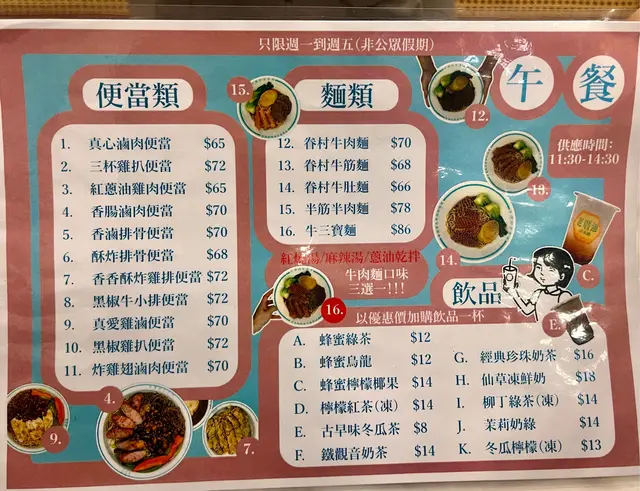 只限週一到週五(非公眾假期)
午餐
供應時間:
11:30-14:30
便當類
1. 真心滷肉便當 $65
2. 三杯雞扒便當 $72
3. 紅蔥油雞肉便當 $65
4. 香腸滷肉便當 $70
5. 香滷排骨便當 $70
6. 酥炸排骨便當 $68
7. 香香酥炸雞排便當 $72
8. 黑椒牛小排便當 $72
9. 真愛雞滷便當 $70
10. 黑椒雞扒便當 $72
11. 炸雞翅滷肉便當 $70
麵類
12. 眷村牛肉麵 $70
13. 眷村牛筋麵 $68
14. 眷村牛肚麵 $66
15. 半筋半肉麵 $78
16. 牛三寶麵 $86
紅燒湯/麻辣湯/蔥油乾拌
牛肉麵口味
三選一!!!
飲品
以優惠價加購飲品一杯
A. 蜂蜜綠茶 $12
B. 蜂蜜烏龍 $12
C. 蜂蜜檸檬椰果 $14
D. 檸檬紅茶(凍) $14
E. 古早味冬瓜茶 $8
F. 鐵觀音奶茶 $14
G. 經典珍珠奶茶 $16
H. 仙草凍鮮奶 $18
I. 柳丁綠茶(凍) $14
J. 茉莉奶綠 $14
K. 冬瓜檸檬(凍) $13
15.
12.
13.
14.
16.
C.
E.
4.
9.
7.